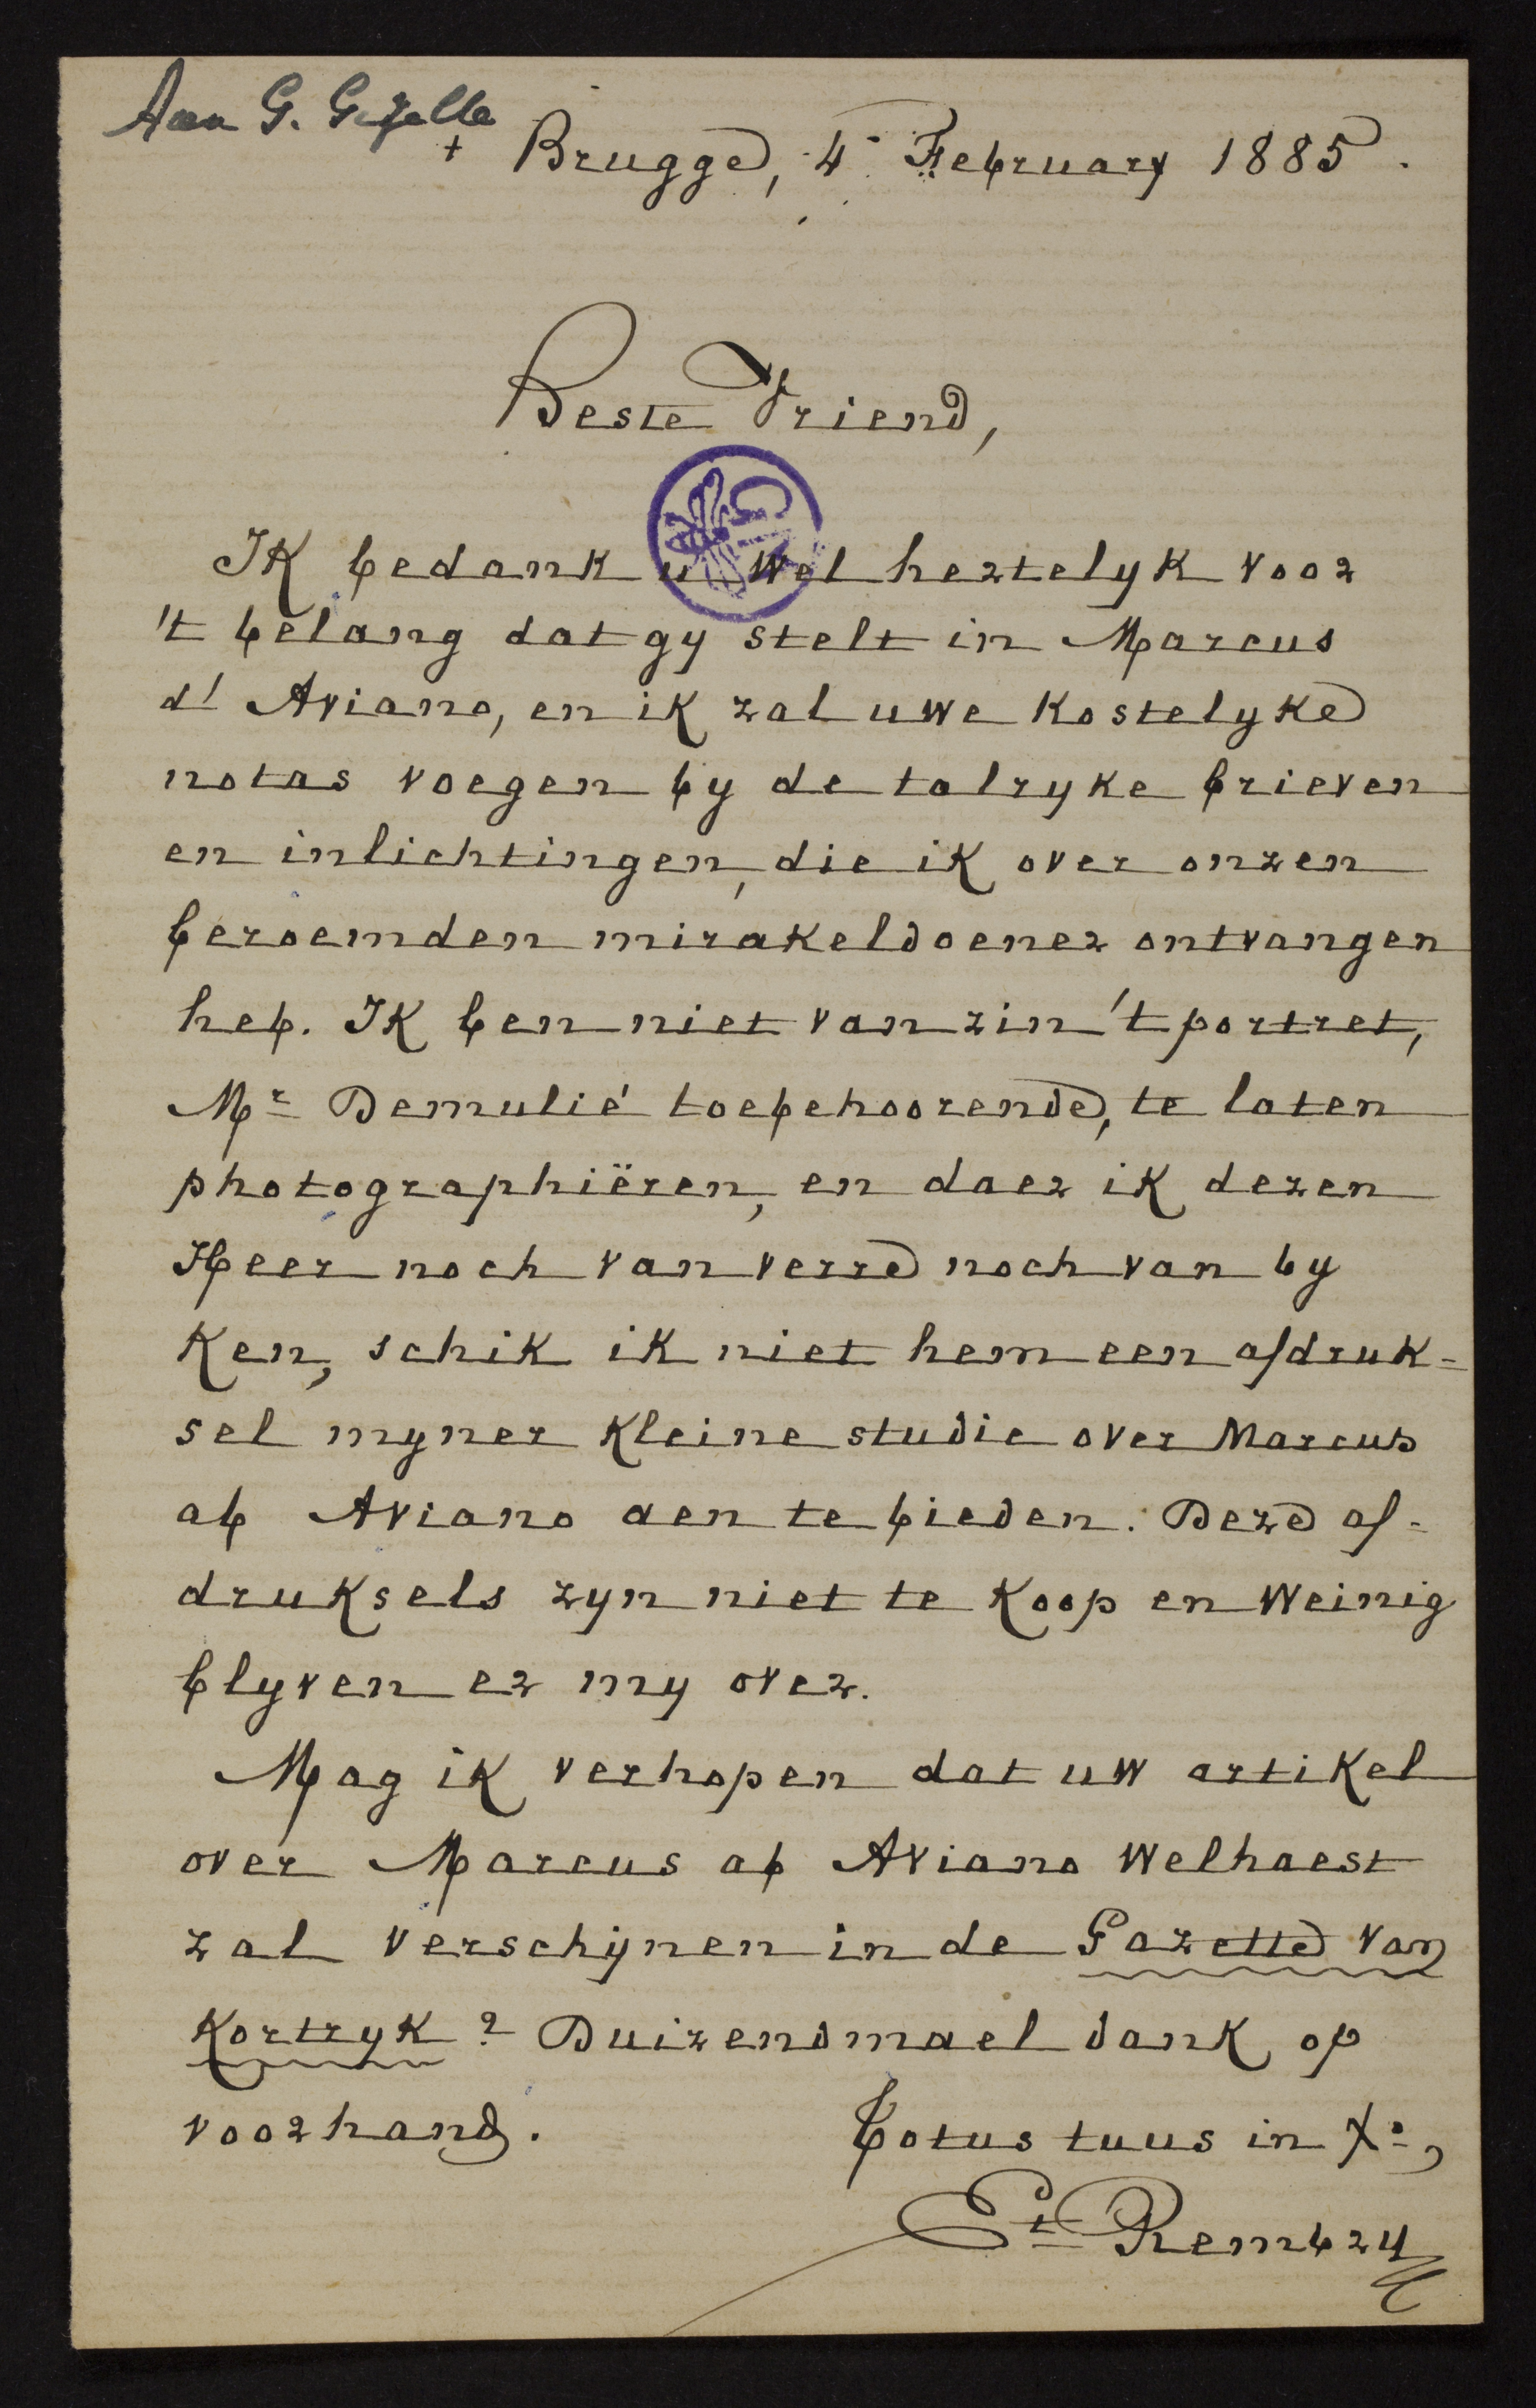 Aan G. Gezelle
+ Brugge, 4 February 1885.
Beste Vriend,
Ik bedank u wel hertelyk voor
't belang dat gy stelt in Marcus
d' Aviano, en ik zal uwe kostelyke
notas voegen by de talryke brieven
en inlichtingen, die ik over onzen
beroemden mirakeldoener ontvangen
heb. Ik ben niet van zin 't portret,
Mr Demulié toebehoorende, te laten
photographiëren, en daer ik dezen
Heer noch van verre noch van by
ken, schik ik niet hem een afdruk-
sel myner kleine studie over Marcus
ab Aviano aen te bieden. Deze af-
druksels zyn niet te koop en weinig
blyven er my over.
Mag ik verhopen dat uw artikel
over Marcus ab Aviano welhaest
zal verschijnen in de Gazette van
Kortryk? Duizendmael dank op
voorhand.
Totus tuus in Xo,
Et Rembry